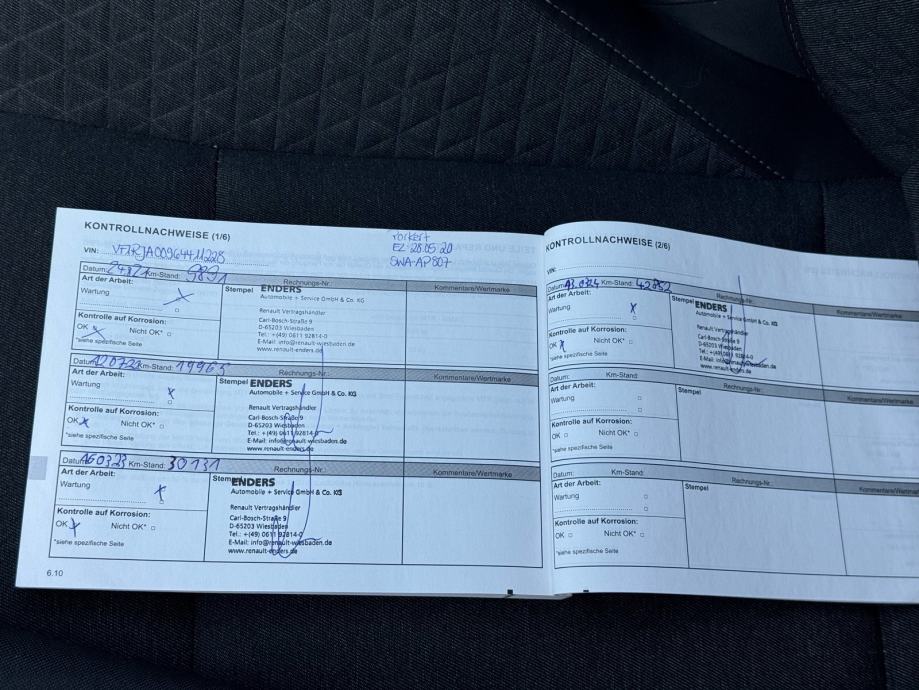 KONTROLLNACHWEISE (1/6)
EZ 28.05.20
SWA-AP 807
VIN: VF1RJA00964411228
Datum: Km-Stand: 9891 Rechnungs-Nr.:
Art der Arbeit: Stempel ENDERS Kommentare/Wertmarke
Wartung Automobile + Service GmbH & Co. KG
Renault Vertragshändler
Kontrolle auf Korrosion: Carl-Bosch-Straße 9
D-65203 Wiesbaden
OK Nicht OK* Tel.: +(49) 0611 92814-0
*siehe spezifische Seite E-Mail: info@renault-wiesbaden.de
www.renault-enders.de
Datum: 120722 Km-Stand: 19965 Rechnungs-Nr.:
Art der Arbeit: Stempel ENDERS Kommentare/Wertmarke
Wartung Automobile + Service GmbH & Co. KG
Renault Vertragshändler
Kontrolle auf Korrosion: Carl-Bosch-Straße 9
D-65203 Wiesbaden
OK Nicht OK* Tel.: +(49) 0611 92814-0
*siehe spezifische Seite E-Mail: info@renault-wiesbaden.de
www.renault-enders.de
Datum: 160323 Km-Stand: 30131 Rechnungs-Nr.:
Art der Arbeit: Stempel ENDERS Kommentare/Wertmarke
Wartung Automobile + Service GmbH & Co. KG
Renault Vertragshändler
Kontrolle auf Korrosion: Carl-Bosch-Straße 9
D-65203 Wiesbaden
OK Nicht OK* Tel.: +(49) 0611 92814-0
*siehe spezifische Seite E-Mail: info@renault-wiesbaden.de
www.renault-enders.de
6.10
KONTROLLNACHWEISE (2/6)
VIN:
Datum: 13.0324 Km-Stand: 42852 Rechnungs-Nr.:
Art der Arbeit: Stempel ENDERS Kommentare/Wertmarke
Wartung Automobile + Service GmbH & Co. KG
Renault Vertragshändler
Kontrolle auf Korrosion: Carl-Bosch-Straße 9
D-65203 Wiesbaden
OK Nicht OK* Tel.: +(49) 0611 92814-0
*siehe spezifische Seite E-Mail: info@renault-wiesbaden.de
www.renault-enders.de
Datum: Km-Stand: Rechnungs-Nr.:
Art der Arbeit: Stempel Kommentare/Wertmarke
Wartung
Kontrolle auf Korrosion:
OK Nicht OK*
*siehe spezifische Seite
Datum: Km-Stand: Rechnungs-Nr.:
Art der Arbeit: Stempel Kommentare/Wertmarke
Wartung
Kontrolle auf Korrosion:
OK Nicht OK*
*siehe spezifische Seite